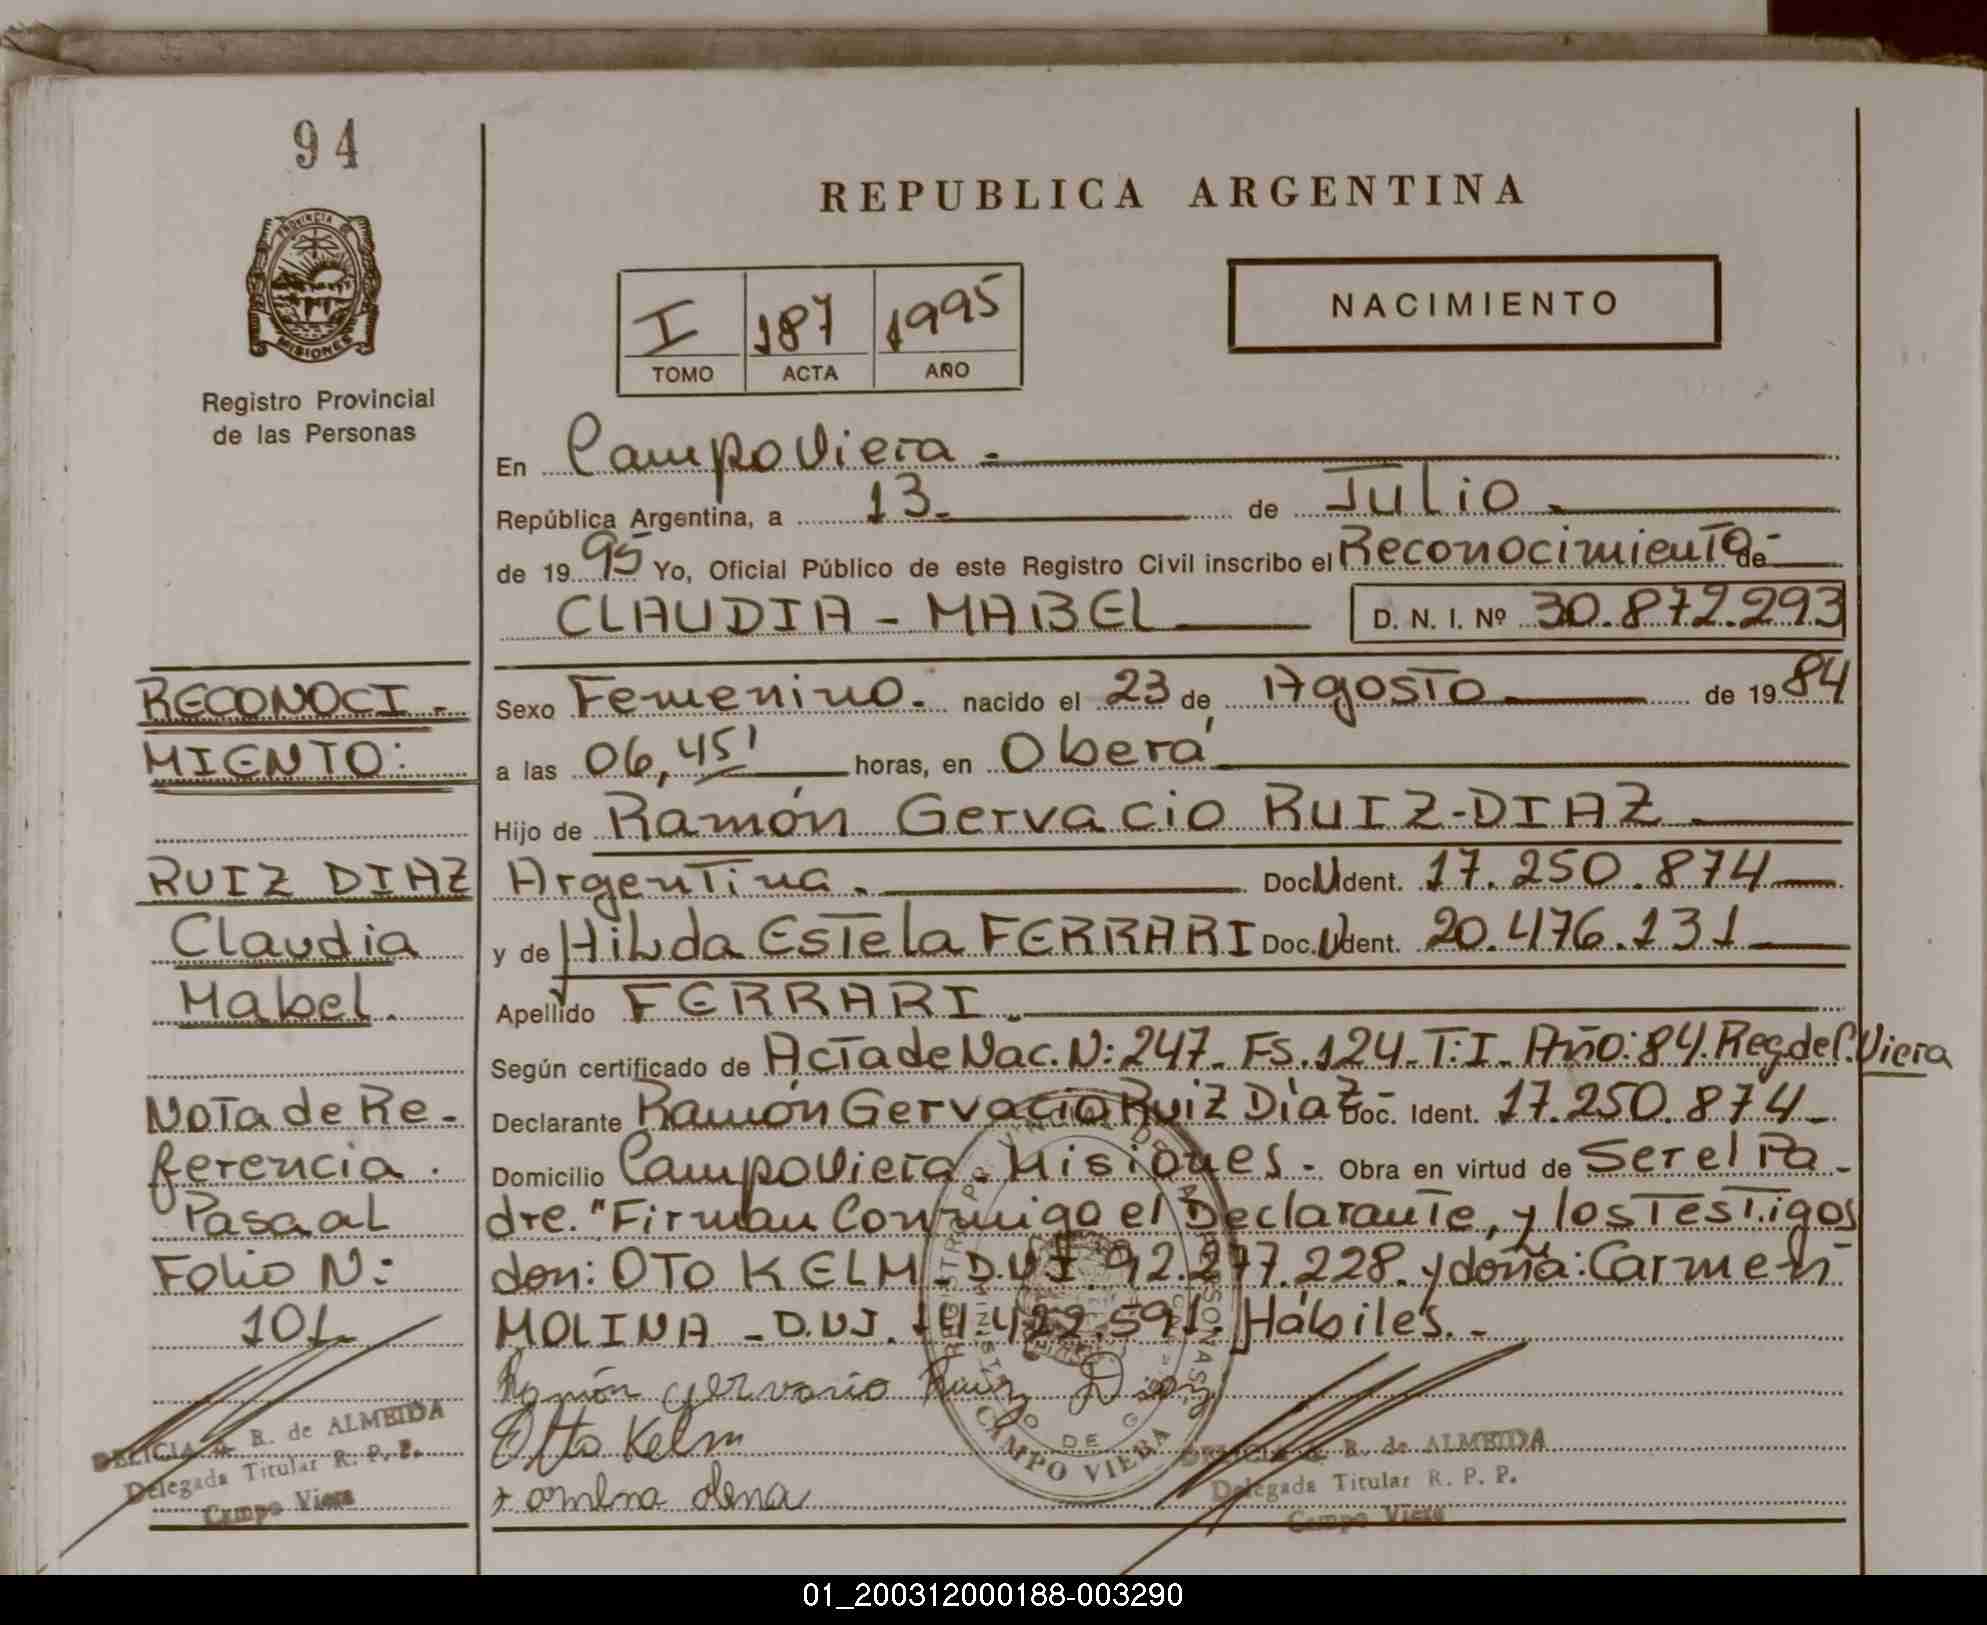 94
PROVINCIA DE
MISIONES
Registro Provincial
de las Personas
REPUBLICA ARGENTINA
I 187 1995
TOMO ACTA AÑO
NACIMIENTO
En Campo Viera.-
República Argentina, a 13.- de Julio.-
de 1995 Yo, Oficial Público de este Registro Civil inscribo el Reconocimiento - de
CLAUDIA - MABEL D. N. I. Nº 30.872.293
Sexo Femenino. nacido el 23 de Agosto de 1984
a las 06,45' horas, en Oberá
Hijo de Ramón Gervacio RUIZ-DIAZ
Argentina. Doc.U.Ident. 17.250.874
y de Hilda Estela FERRARI Doc.U.Ident. 20.476.131
Apellido FERRARI.
Según certificado de Acta de Nac. N: 247. Fs. 124. T:I. Año: 84. Reg. del C. Viera
Declarante Ramón Gervacio Ruiz Díaz - Doc. Ident. 17.250.874-
Domicilio Campo Viera. Misiones - Obra en virtud de Ser el Pa-
dre. "Firman Conmigo el Declarante, y los Testigos
don: OTO KELM - D.N.I. 92.277.228. y doña: Carmen
MOLINA - D.N.I. 14.422.591. Hábiles.-
Ramón gervacio Ruiz Diaz
Otto Kelm
RECONOCI-
MIENTO:
RUIZ DIAZ
Claudia
Mabel.
Nota de Re-
ferencia.
Pasa al
Folio N:
101
DELICIA R. de ALMEIDA
Delegada Titular R. P. P.
Campo Viera
CAMPO VIERA
R. de ALMEIDA
Delegada Titular R. P. P.
Campo Viera
01_200312000188-003290